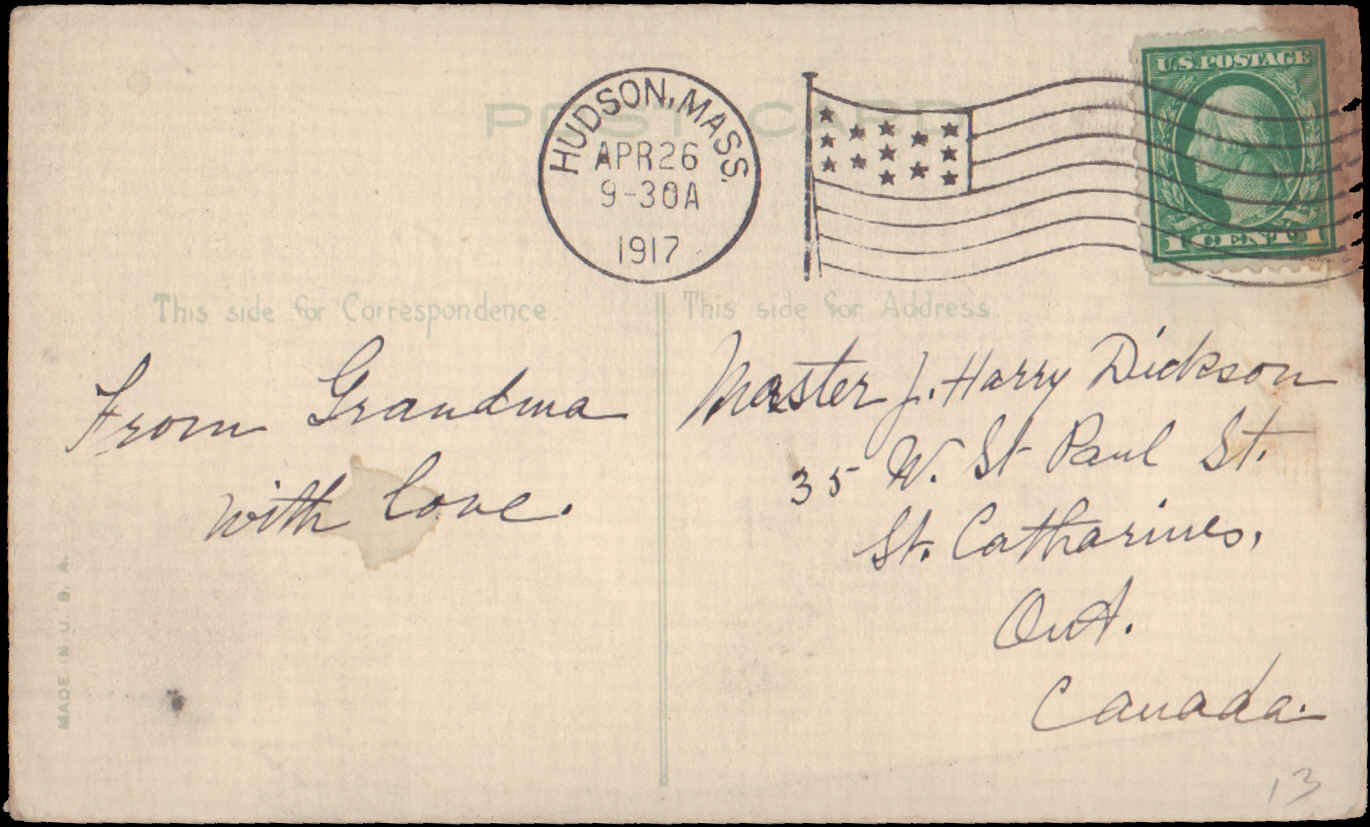 POST CARD
HUDSON, MASS.
APR 26
9-30A
1917
U.S. POSTAGE
1 CENT 1
This side for Correspondence.
This side for Address.
From Grandma
with love.
Master J. Harry Dickson
35 W. St Paul St.
St. Catharines,
Ont.
Canada.
MADE IN U. S. A.
13